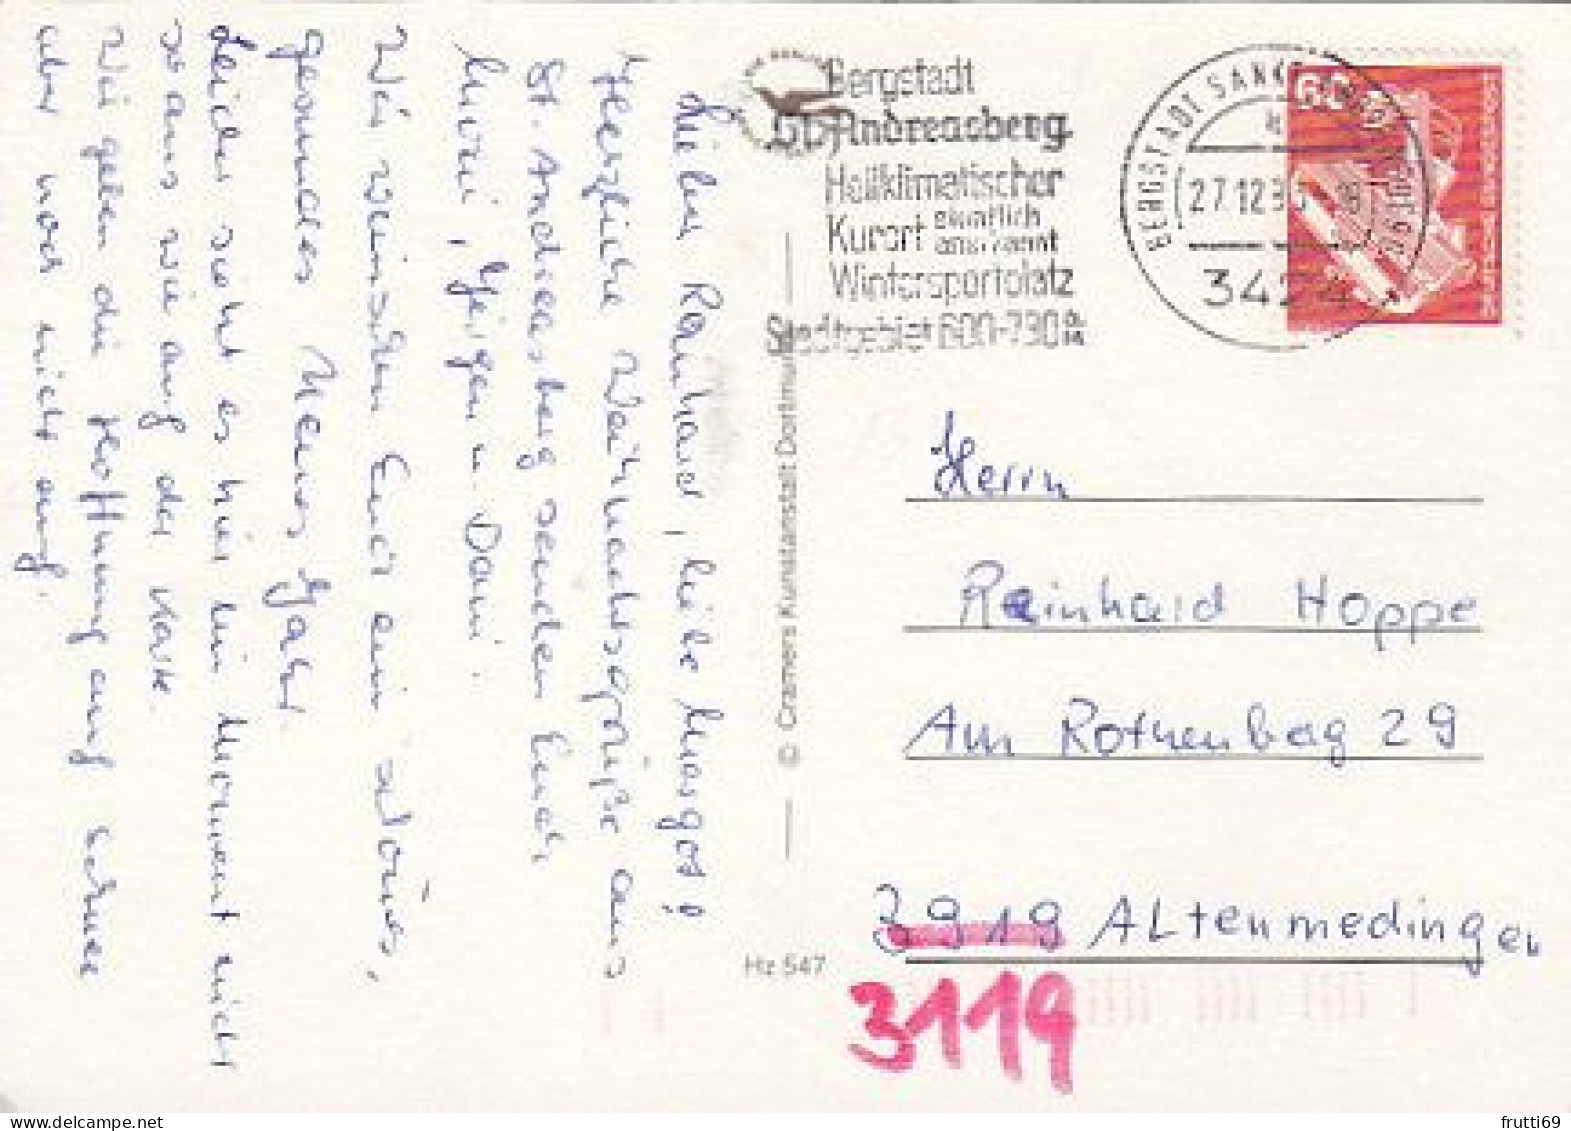 Lieber Reinhard, liebe Margot!
Herzliche Weihnachtsgrüße aus
St. Andreasberg senden Euch
Jürgen u. Dani.
Wir wünschen Euch ein schönes,
gesundes Neues Jahr.
Leider sieht es hier im Moment nicht
so aus wie auf der Karte.
Wir geben die Hoffnung auf Schnee
aber noch nicht auf.
© Cramers Kunstanstalt Dortmund
Hz 547
Bergstadt
St. Andreasberg
Heilklimatischer
Kurort staatlich
anerkannt
Wintersportplatz
Stadtgebiet 600-
BERGSTADT SANKT ANDREASBERG
27.12.8
3424
60
Herrn
Reinhard Hoppe
Am Rothenbag 29
3919 Altenmedingen
3119
frutti69